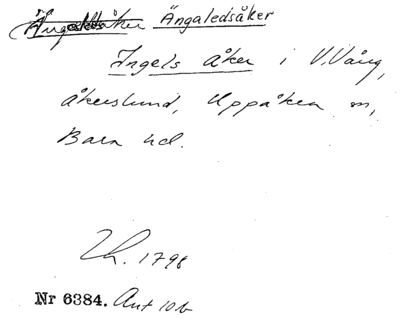 Ängaledsåker
Ingels åker i V.Vång,
åkerslund, Uppåkra sn,
Bara hd.
Lh. 1798
Nr 6384. Ant 10b